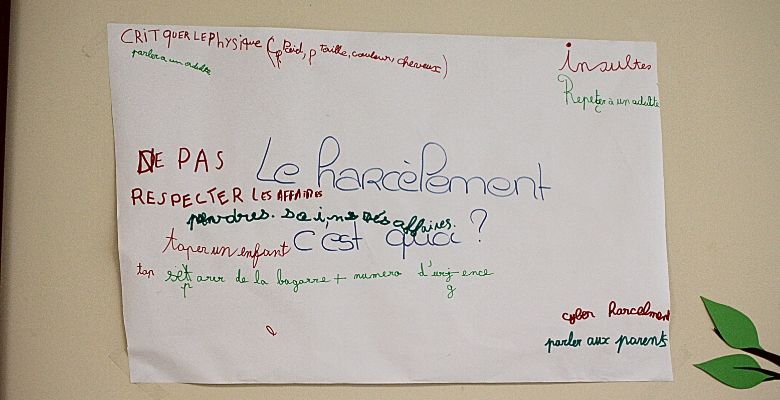 CRITQUER LE PHYSIQUE (Poid, Taille, couleur, cheveux)
parler a un adulte
insultes
Repeter à un adulte
NE PAS
Le harcèlement
RESPECTER LES AFFAIRES
prendres soin, ne des affaires.
taper un enfant
c'est quoi ?
tap
separer de la bagarre + numero d'urgence
cyber Harcelment
parler aux parents